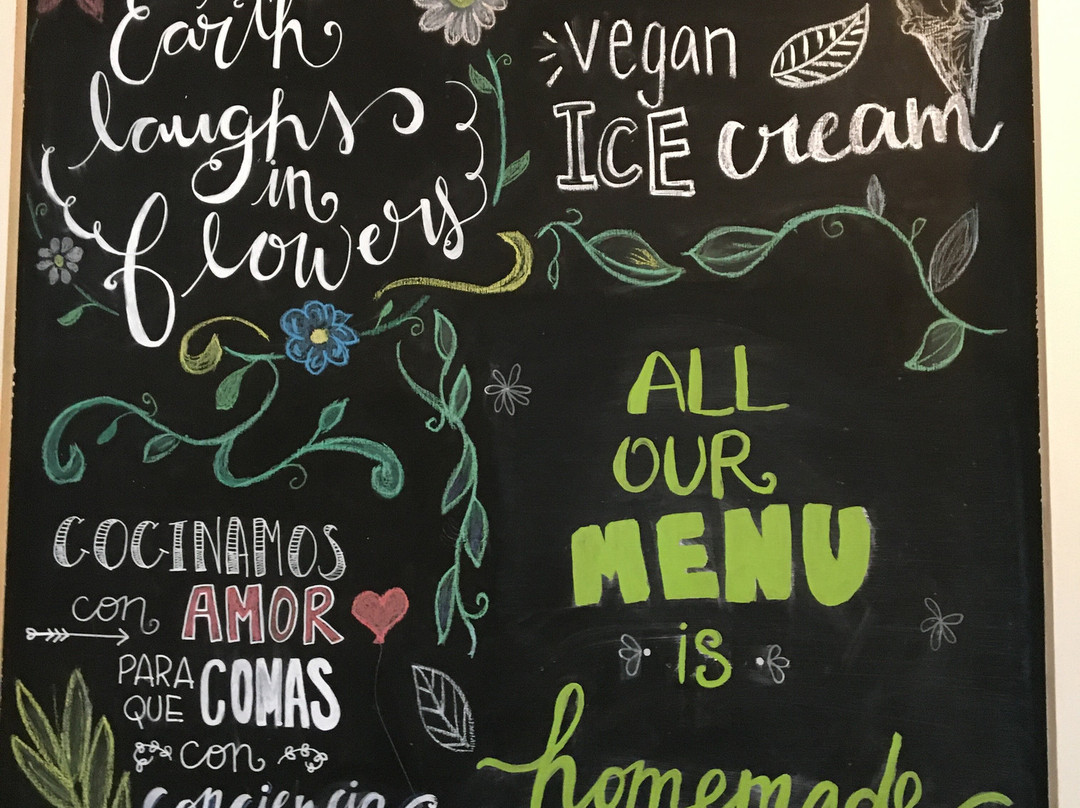 Earth
laughs
in
flowers
vegan
ICE cream
COCINAMOS
con AMOR
PARA
QUE COMAS
con
conciencia
ALL
OUR
MENU
is
homemade